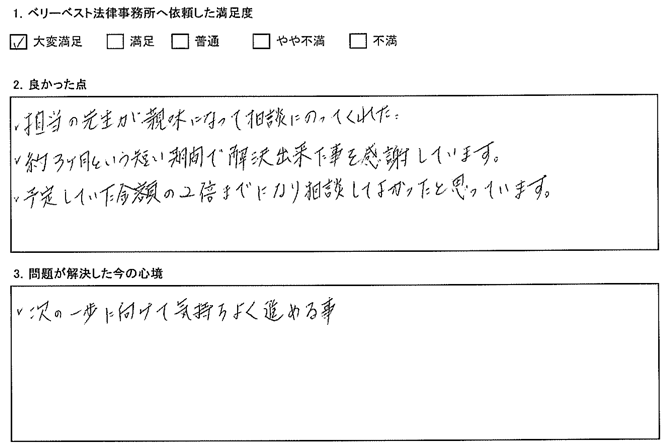 1. ベリーベスト法律事務所へ依頼した満足度
☑ 大変満足 ☐ 満足 ☐ 普通 ☐ やや不満 ☐ 不満
2. 良かった点
・担当の先生が親味になって相談にのってくれた。
・約3ヶ月という短い期間で解決出来た事を感謝しています。
・予定していた金額の2倍までになり相談してよかったと思っています。
3. 問題が解決した今の心境
・次の一歩に向けて気持ちよく進める事